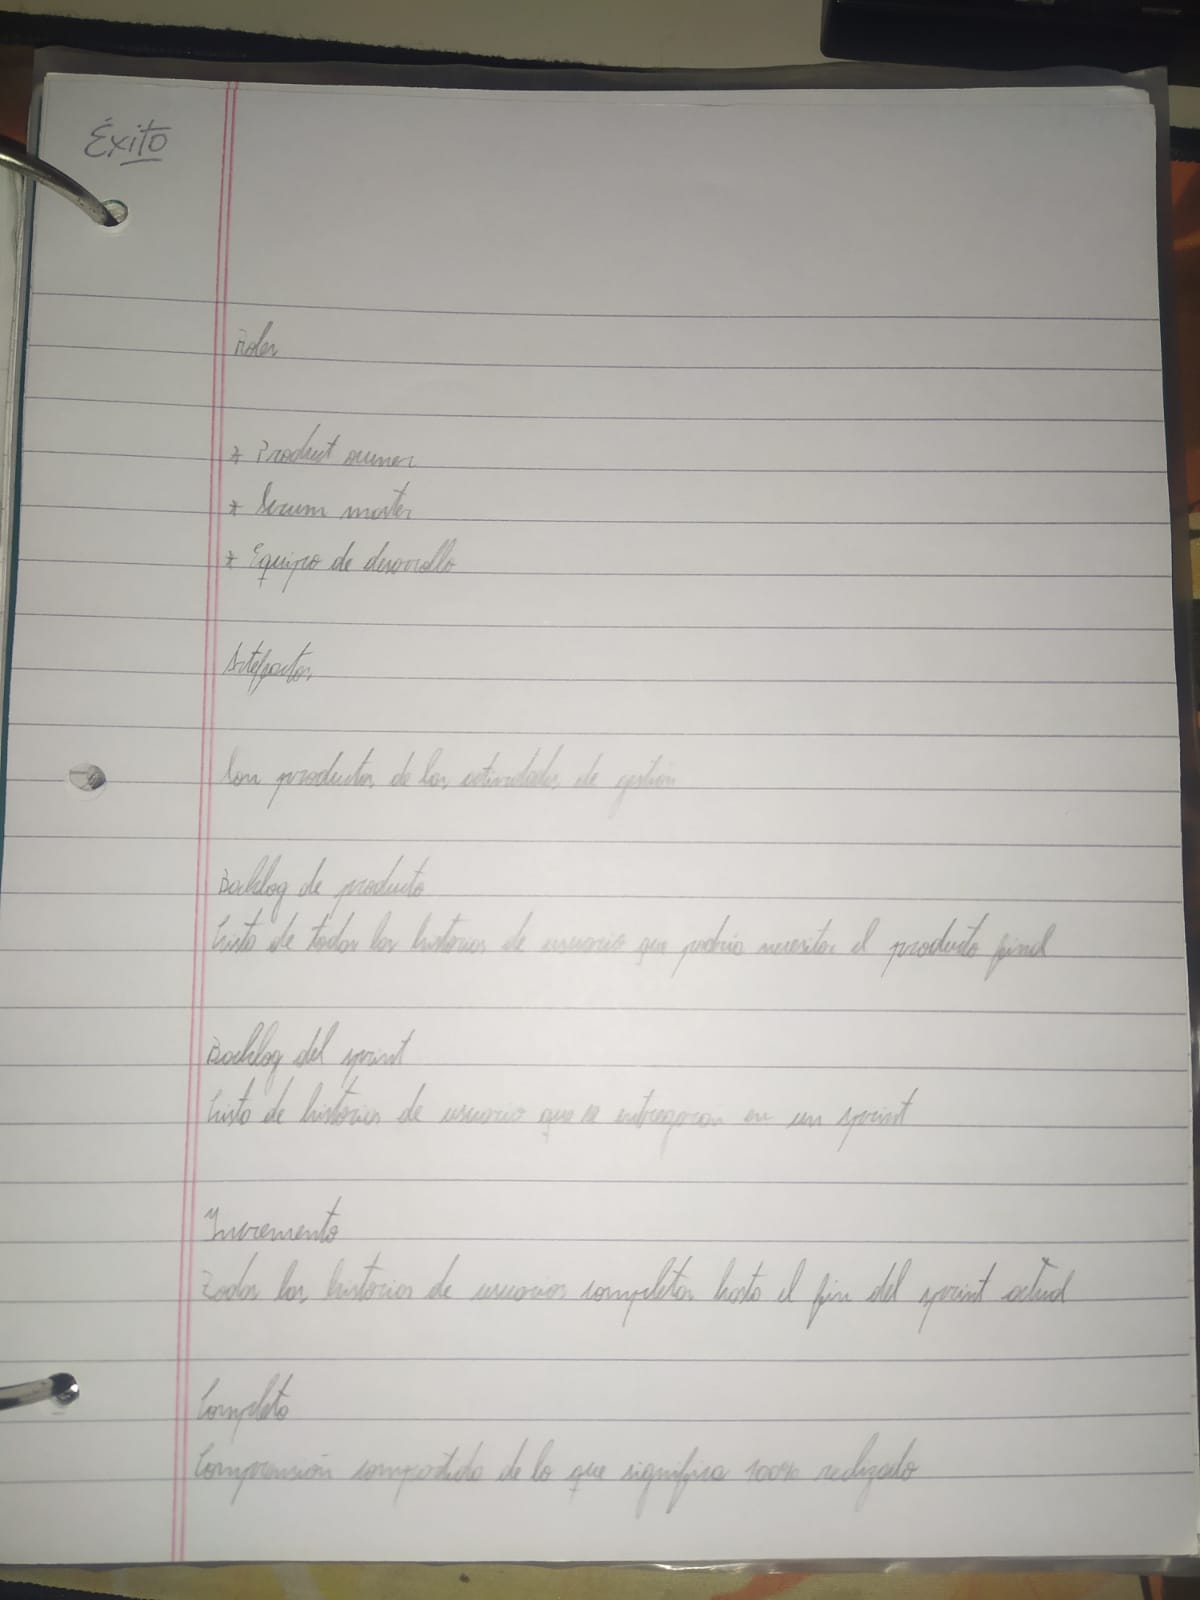 Éxito
Roles
* Product owner
* Scrum master
* Equipo de desarrollo
Artefactos
Son productos de las actividades de gestión
Backlog de producto
Lista de todas las historias de usuario que podría necesitar el producto final
Backlog del sprint
Lista de historias de usuario que se entregaran en un sprint
Incremento
Todas las historias de usuarios completas hasta el fin del sprint actual
Completo
Comprensión compartida de lo que significa 100% realizado